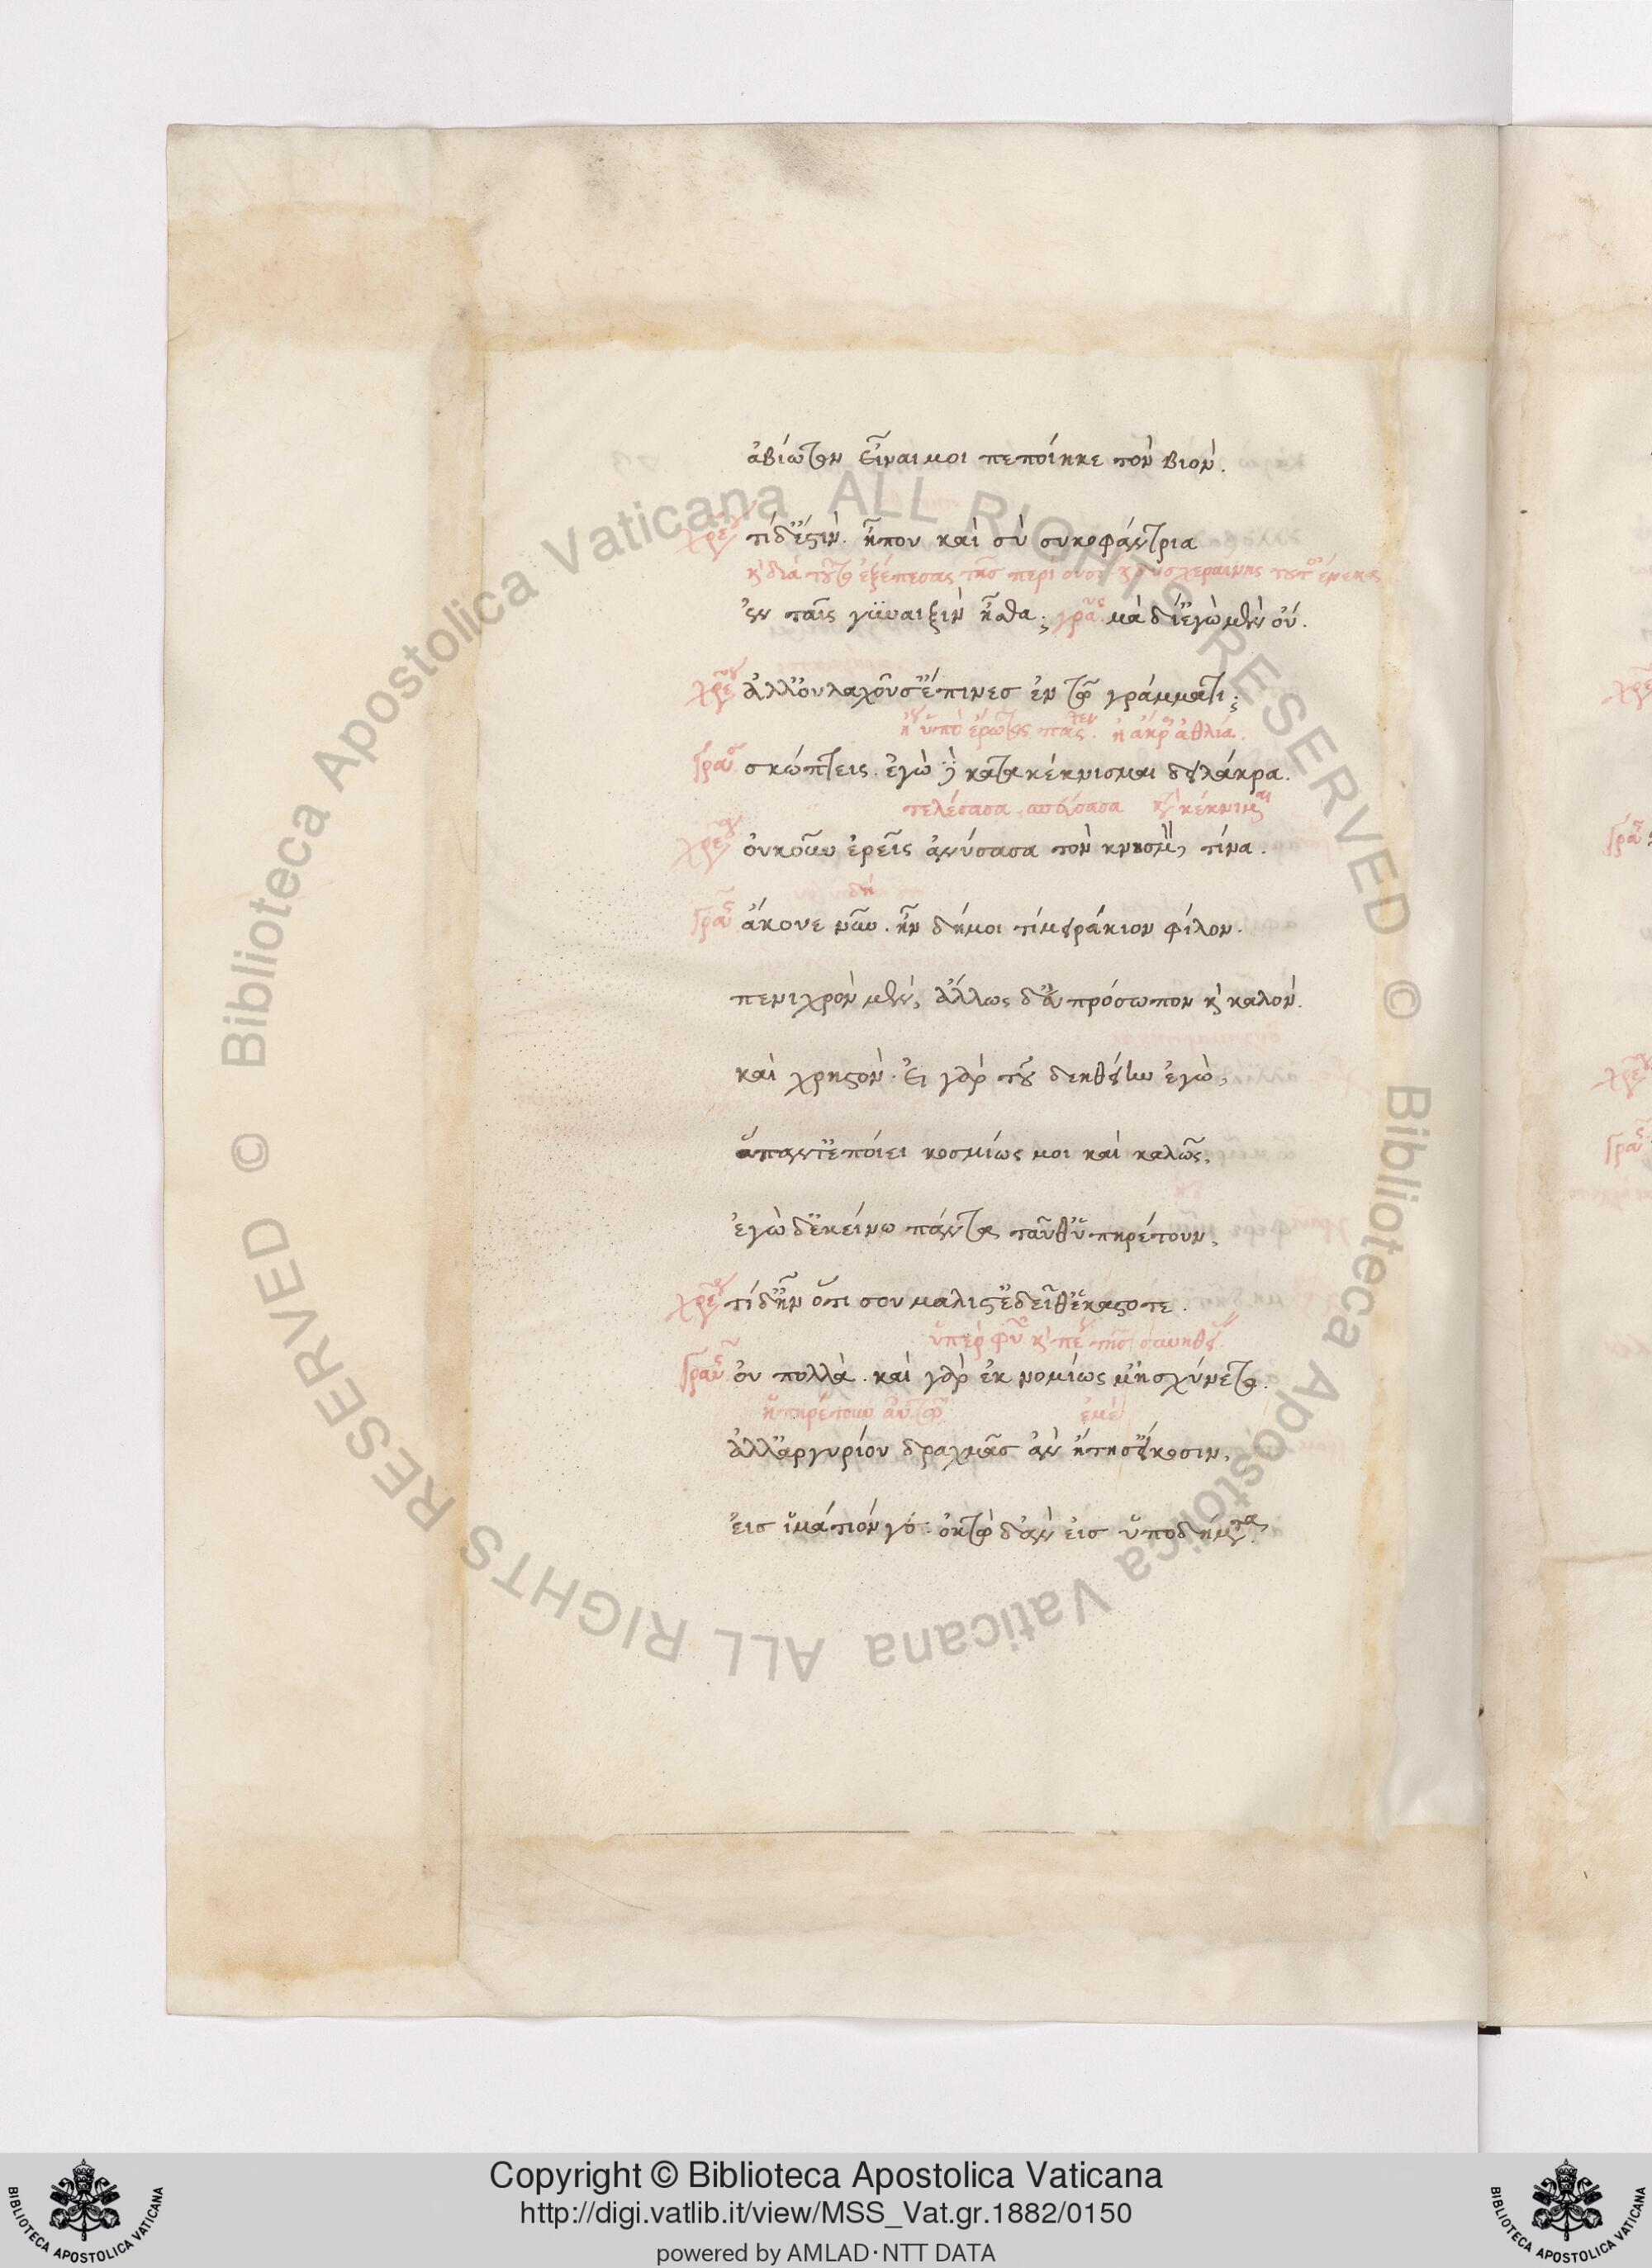 ἀβίωτον εἶναι μοι πεποίηκε τὸν βίον.
χρε τί δ' ἔστιν. ἦπου καὶ σὺ συκοφάντρια
κ διὰ τοῦτο ἐξέπεσας τῆσ περιουσι
ἐν ταῖς γυναιξὶν ἦσθα; γραῦς μὰ δί' ἐγὼ μὲν οὔ.
χρε ἀλλ' οὐ λαχοῦσ' ἔπινεσ ἐν τῶ γράμματι;
ὑπὸ ἔρωτος ἡ ἀθλία.
γραῦς σκώπτεις. ἐγὼ δὲ κατακέκνισμαι δειλάκρα.
τελέσασα κέκνισμαι
χρε οὐκοῦν ἐρεῖς ἀνύσασα τὸν κνησμὸν τίνα.
δή
γραῦς ἄκουε νῦν. ἦν δή μοι τὶ μειράκιον φίλον.
πενιχρὸν μὲν, ἄλλως δ' εὐπρόσωπον κ καλόν.
καὶ χρηστόν. εἰ γάρ του δεηθείην ἐγὼ,
ἅπαντ' ἐποίει κοσμίως μοι καὶ καλῶς.
ἐγὼ δ' ἐκείνω πάντα ταῦθ' ὑπηρέτουν.
χρε τί δ' ἦν ὅτι σου μάλιστ' ἐδεῖθ' ἑκάστοτε.
ὑπὲρ φύσιν
γραῦς οὐ πολλά. καὶ γὰρ ἐκνομίως μ' ἠσχύνετο.
ὑπηρέτουν αὐτῶ ἐμὲ
ἀλλ' ἀργυρίου δραχμὰσ ἂν ἤτησ' εἴκοσιν,
εἰσ ἱμάτιόν γ'. ὀκτὼ δ' ἂν εἰσ ὑποδήματα.
Copyright © Biblioteca Apostolica Vaticana
http://digi.vatlib.it/view/MSS_Vat.gr.1882/0150
powered by AMLAD·NTT DATA
© Biblioteca Apostolica Vaticana ALL RIGHTS RESERVED
© Biblioteca Apostolica Vaticana ALL RIGHTS RESERVED
BIBLIOTECA APOSTOLICA VATICANA
BIBLIOTECA APOSTOLICA VATICANA